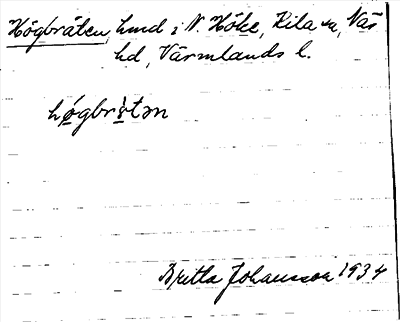 Högbråten, hmd i N. Höke, Kila sn, Näs
hd, Värmlands l.
høgbròtən
Britta Johansson 1934